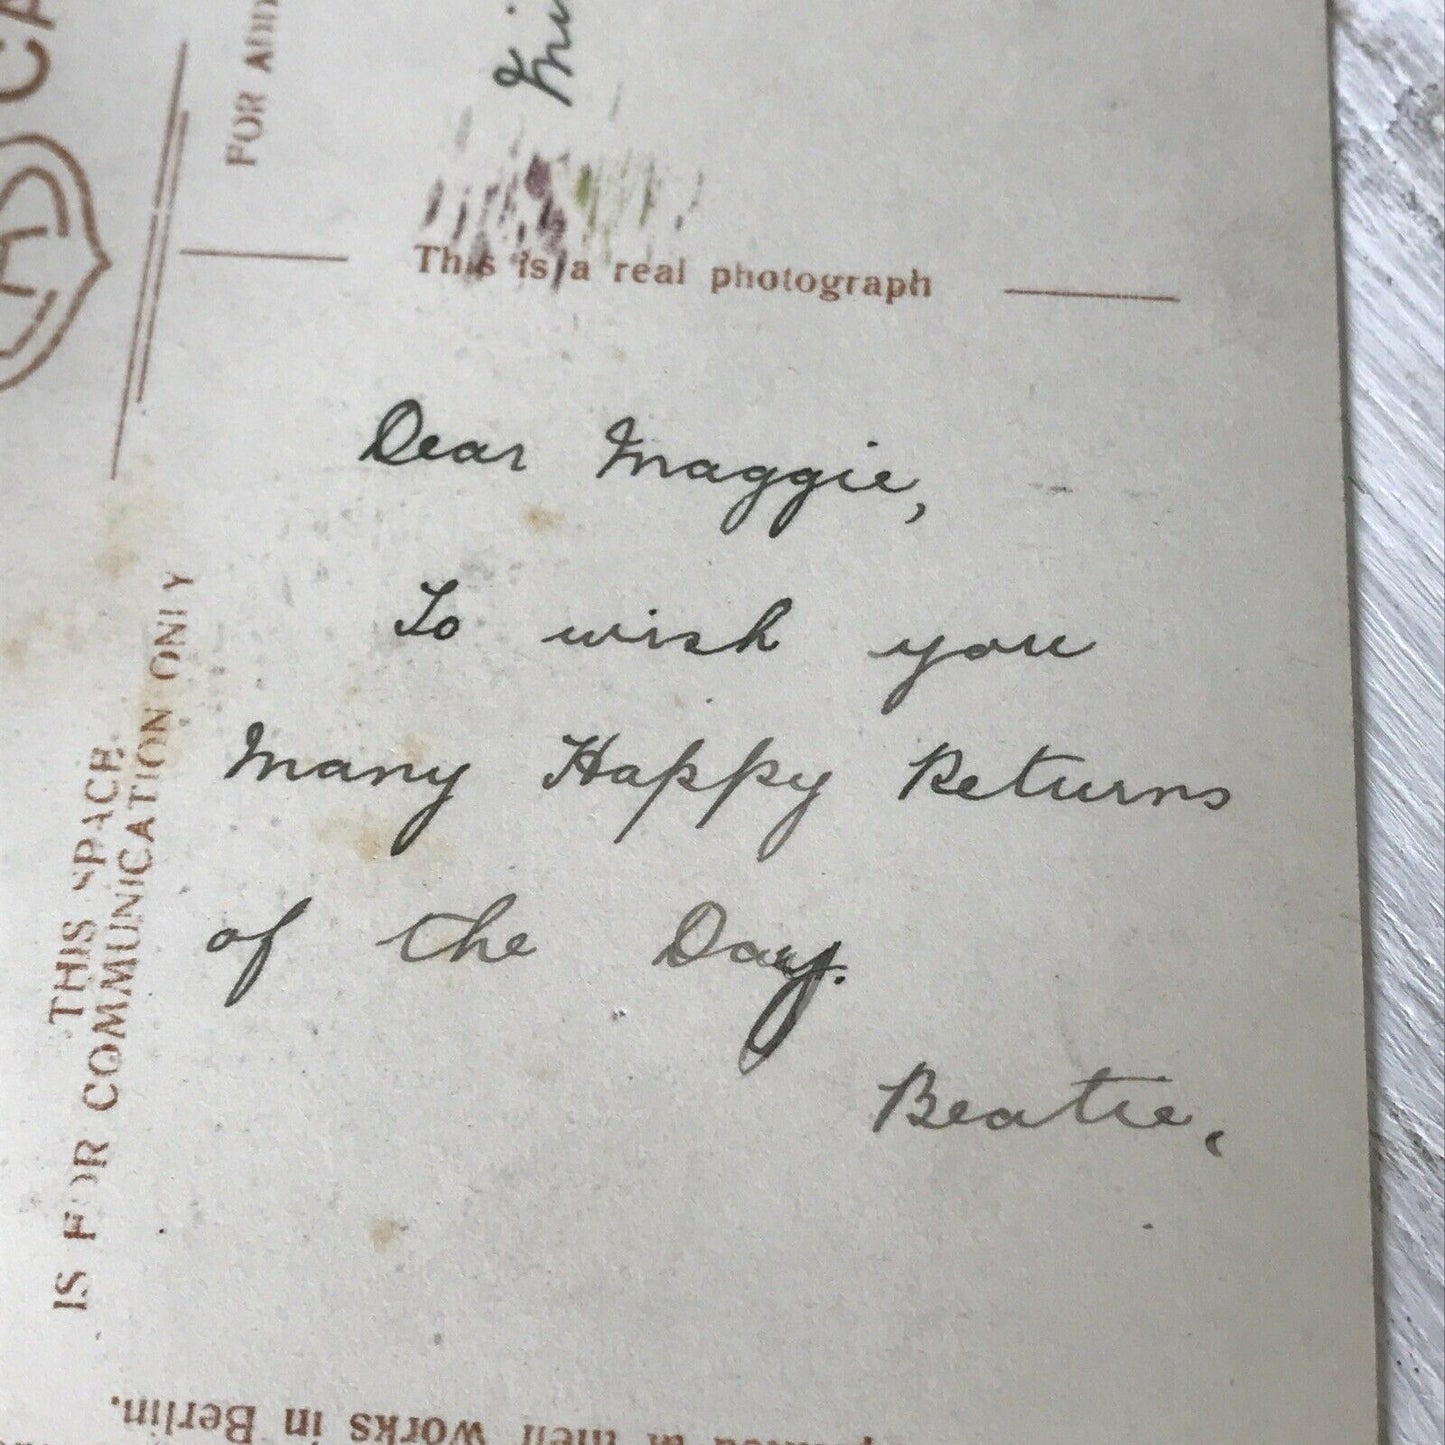 CA
FOR ADD
This is a real photograph
Dear Maggie,
To wish you
Many Happy Returns
of the Day.
Beatie.
THIS SPACE
IS FOR COMMUNICATION ONLY
at their works in Berlin.